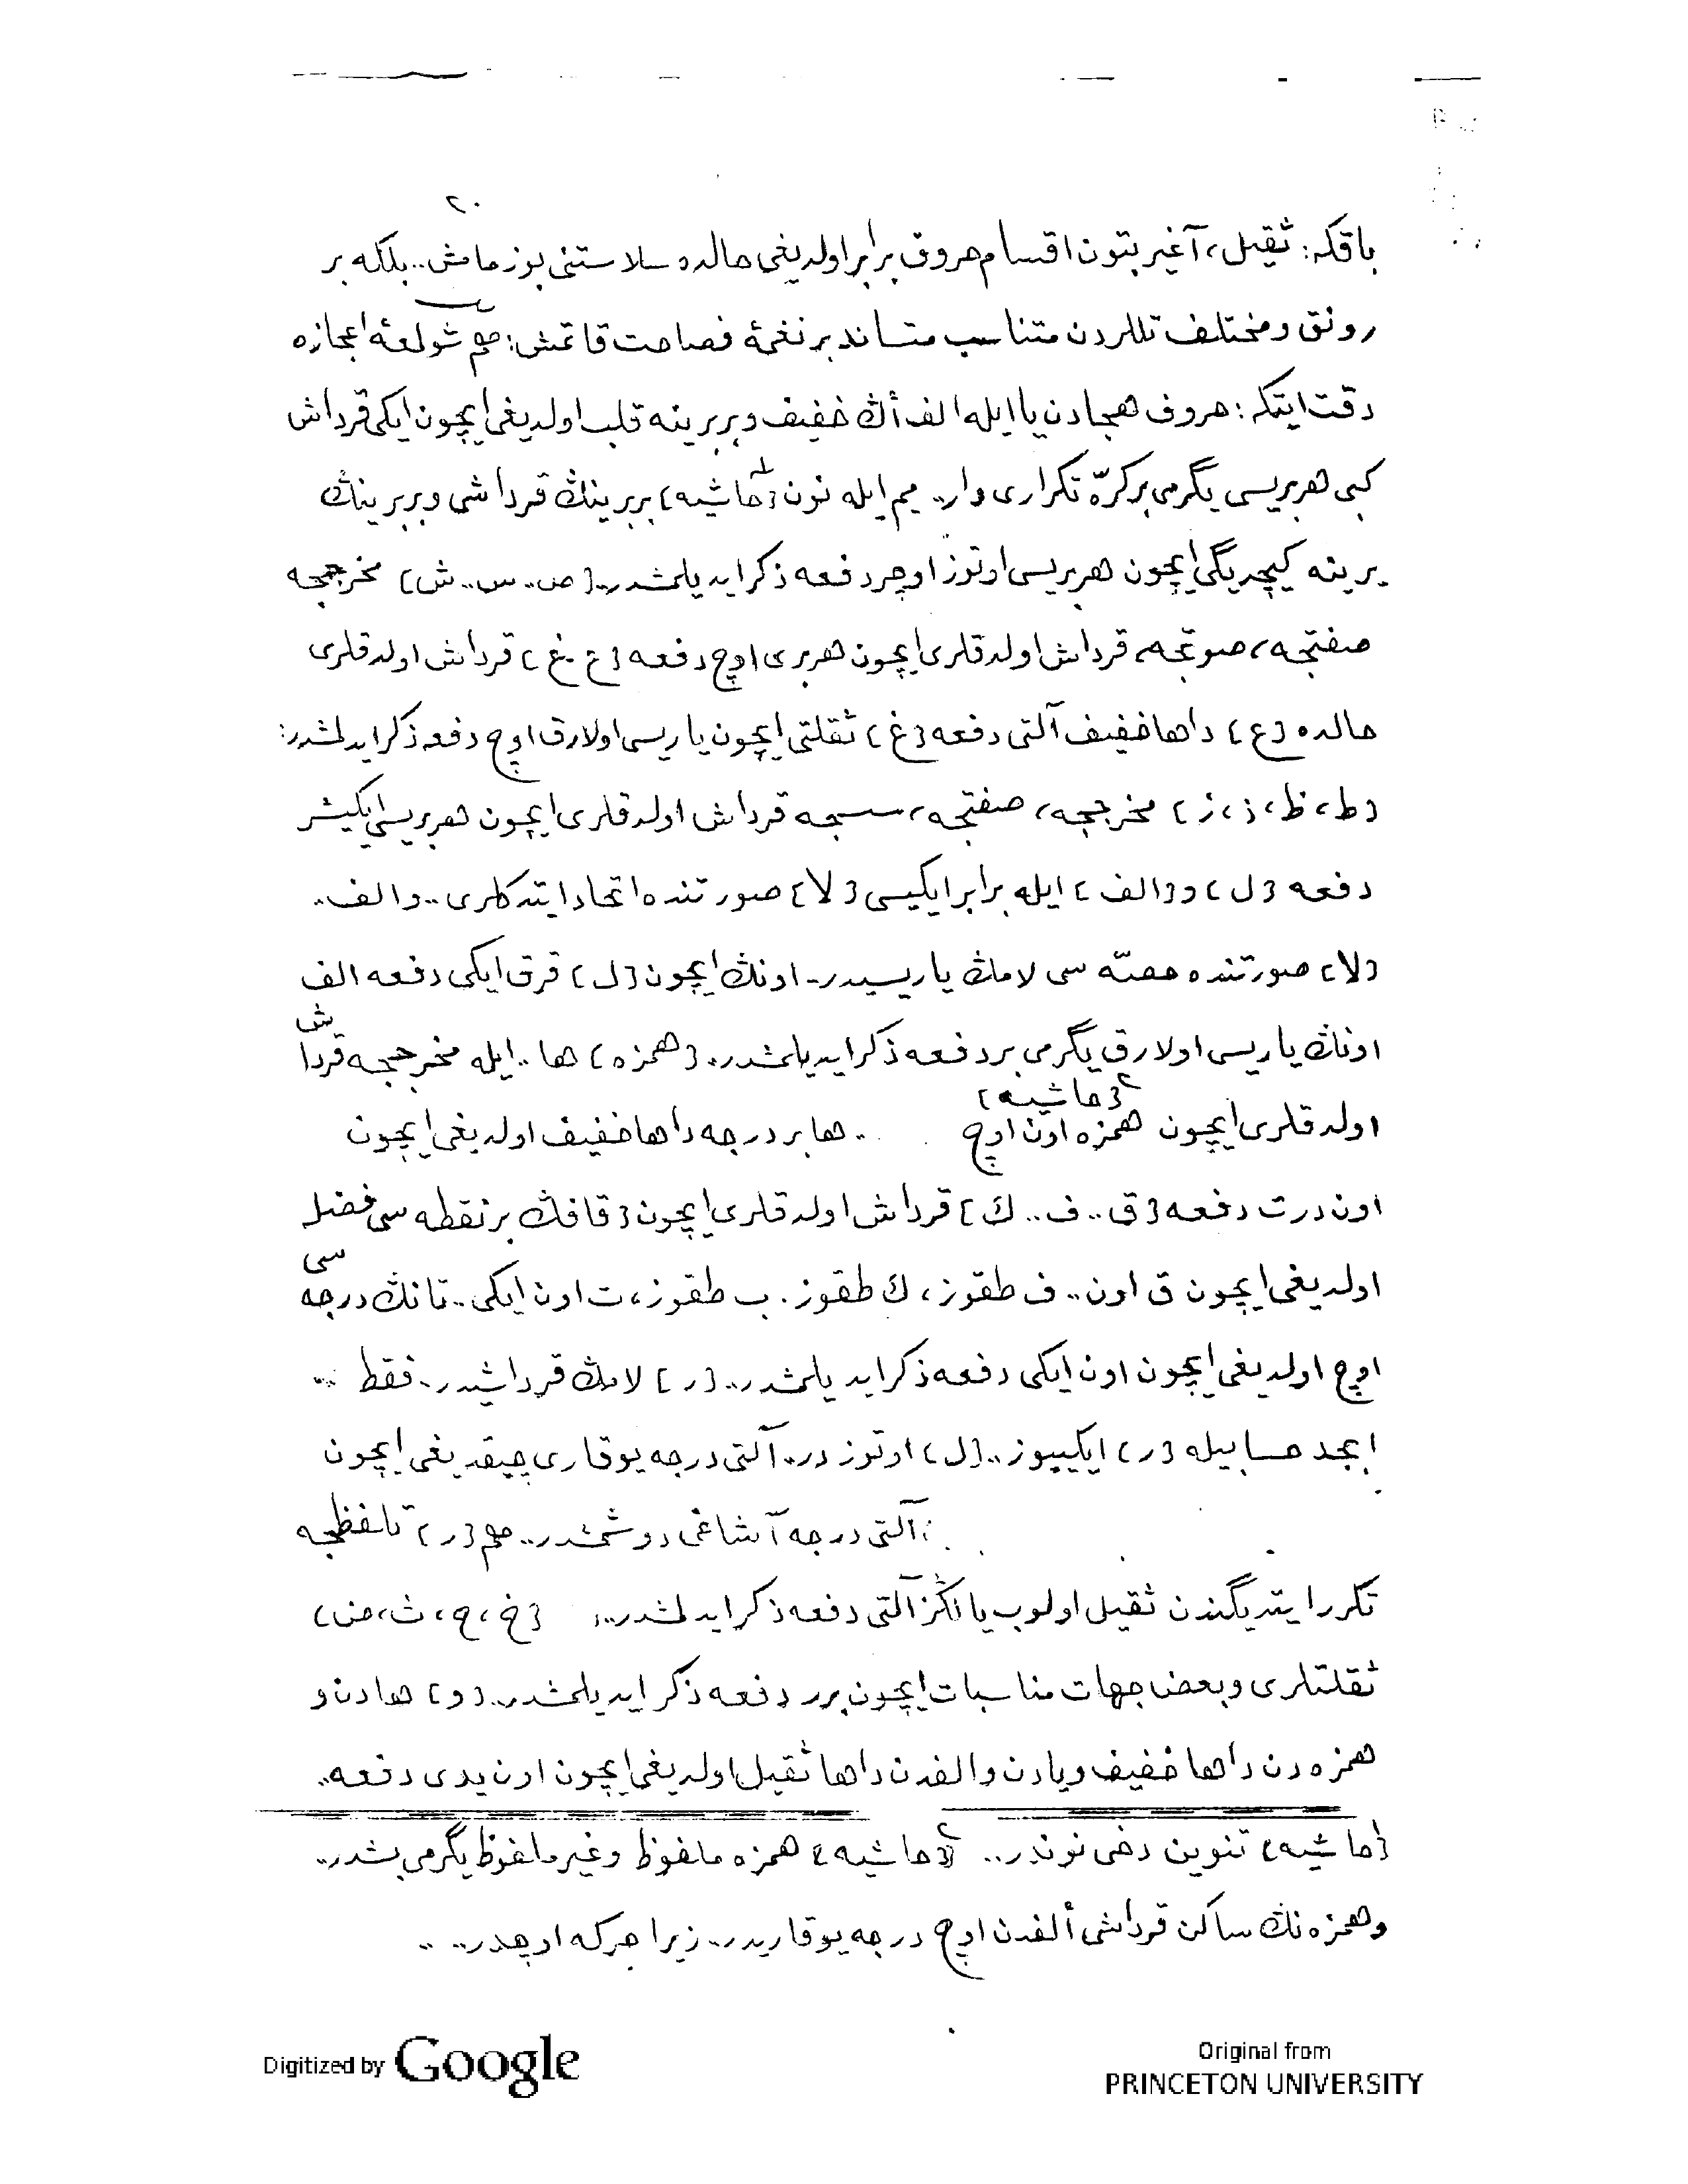 ٢٠
باقكه: ثقيل، آغير بتون اقسام حروف برابر اولديغى حالده سلاستنى بوزمامش.. بلكه بر
رونق و مختلف تللردن متناسب متساند بر نغمهٔ فصاحت قاتمش: هم شو لمعهٔ اعجازه
دقت ايتكه: حروف هجادن يا ايله الف أڭ خفيف و بربرينه قلب اولديغى ايچون ايكى قرداش
كبى هربريسى يگرمى بر كرّه تكرارى وار.. ميم ايله نون [حاشيه١] بربرينڭ قرداشى و بربرينڭ
يرينه كيچديگى ايچون هربريسى اوتوز اوچر دفعه ذكر ايديلمشدر.. [ص.. س.. ش] مخرججه
صفتجه، صوتجه، قرداش اولدقلرى ايچون هربرى اوچ دفعه [ع . غ] قرداش اولدقلرى
حالده [ع] داها خفيف آلتى دفعه [غ] ثقلتى ايچون ياريسى اولارق اوچ دفعه ذكر ايدلمشدر:
[ط، ظ، ذ، ز] مخرججه، صفتجه، سسجه قرداش اولدقلرى ايچون هربريسى ايكيشر
دفعه [ل] و [الف] ايله برابر ايكيسى [لا] صورتنده اتحاد ايتدكلرى.. و الف..
[لا] صورتنده حصّه سى لامڭ ياريسيدر- اونڭ ايچون [ل] قرق ايكى دفعه الف
اونڭ ياريسى اولارق يگرمى بر دفعه ذكر ايديلمشدر.. [همزه] ها.. ايله مخرججه قرداش
اولدقلرى ايچون همزه [حاشيه٢] اون اوچ .. ها بر درجه داها خفيف اولديغى ايچون
اون درت دفعه [ق.. ف.. ك] قرداش اولدقلرى ايچون [قافڭ بر نقطه سى فضله
اولديغى ايچون ق اون.. ف طقوز، ك طقوز. ب طقوز، ت اون ايكى.. تانڭ درجه سى
اوچ اولديغى ايچون اون ايكى دفعه ذكر ايديلمشدر.. [ر] لامڭ قرداشيدر.. فقط ..
ابجد حسابيله [ر] ايكييوز.. [ل] اوتوزدر.. آلتى درجه يوقارى چيقديغى ايچون
آلتى درجه آشاغى دوشمشدر.. هم [ر] تلفظجه
تكرر ايتديگندن ثقيل اولوب يالڭز آلتى دفعه ذكر ايدلمشدر.. [خ، ح، ث، ض]
ثقلتلرى و بعض جهات مناسبات ايچون برر دفعه ذكر ايديلمشدر.. [و] هادن و
همزه دن داها خفيف و يادن و الفدن داها ثقيل اولديغى ايچون اون يدى دفعه..
[حاشيه] تنوين دخى نوندر.. [حاشيه٢] همزه ملفوظ و غير ملفوظ يگرمى بشدر..
و همزه نڭ ساكن قرداشى ألفدن اوچ درجه يوقاريدر.. زيرا حركه اوچدر.. ..
Digitized by Google
Original from
PRINCETON UNIVERSITY